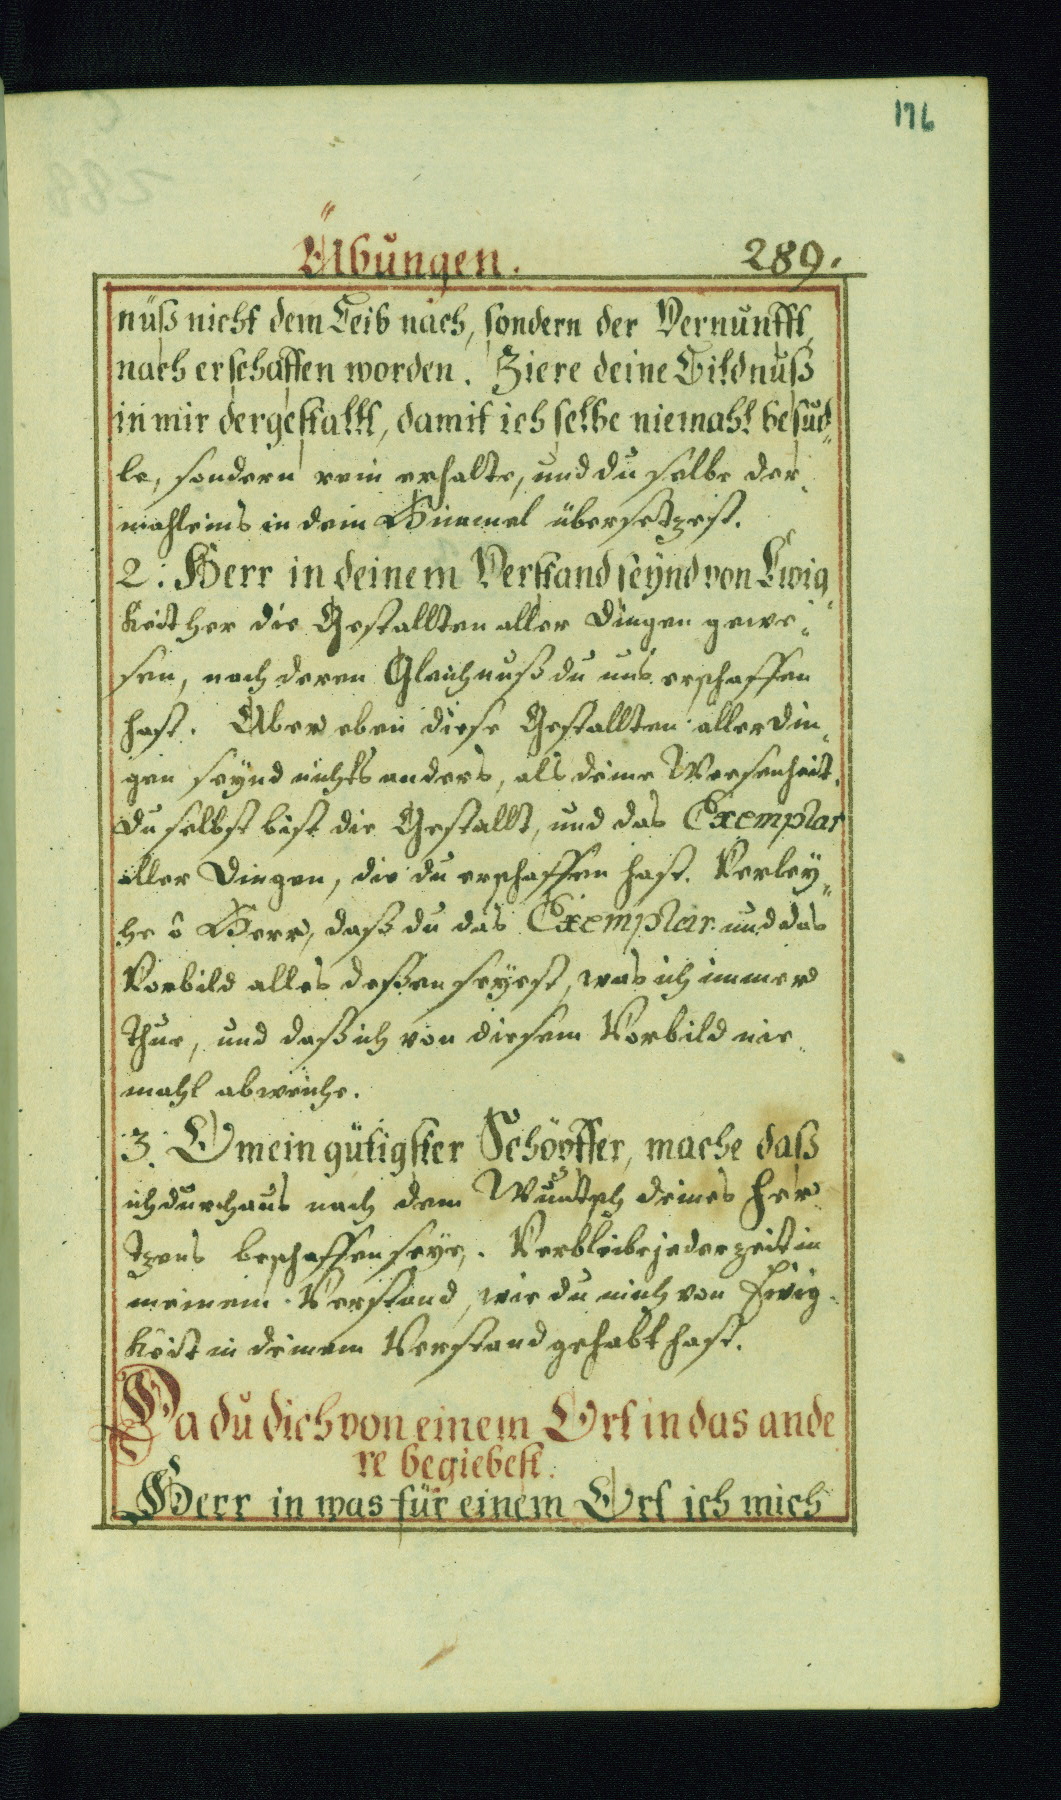 176
Übungen. 289.
nüß nicht dem Leib nach, sondern der Vernunfft,
nach erschaffen worden. Ziere deine Bildnuß
in mir dergestallt, damit ich selbe niemahl besud„
le, sondern rein erhalte, und du selbe der„
mahleins in dein Himmel übersetzest.
2. Herr in deinem Verstand seynd von Ewig„
keit her die Gestallten aller Dingen gewe„
sen, nach deren Gleichnuß du uns erschaffen
hast. Aber eben diese Gestallten aller Din„
gen seynd nichts anders, als deine Weesenheit.
Du selbst bist die Gestallt, und das Exemplar
aller Dingen, die du erschaffen hast. Verley„
he ô Herr, daß du das Exemplar und das
Vorbild alles deßen seyest, was ich immer
thue, und daß ich von diesem Vorbild nie„
mahl abweiche.
3. O mein gütigster Schöpffer, mache daß
ich durchaus nach dem Wuntsch deines Her„
tzens beschaffen seye. Verbleibe jederzeit in
meinem Verstand, wie du mich von Ewig„
keit in deinem Verstand gehabt hast.
Da du dich von einem Ort in das ande
re begiebest.
Herr in was für einem Ort ich mich